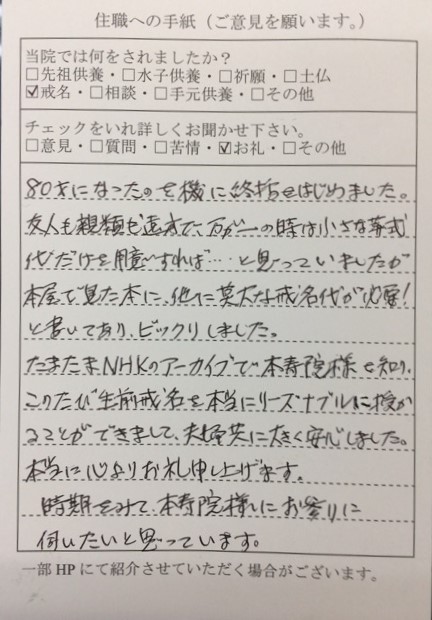 住職への手紙（ご意見を願います。）
当院では何をされましたか？
□先祖供養・□水子供養・□祈願・□土仏
☑戒名・□相談・□手元供養・□その他
チェックをいれ詳しくお聞かせ下さい。
□意見・□質問・□苦情・☑お礼・□その他
80才になったのを機に終括をはじめました。
友人も親類も遠方で、万が一の時は小さな葬式
代だけを用意すれば…と思っていましたが
本屋で見た本に、他に莫大な戒名代が必要！
と書いてあり、ビックリしました。
たまたまNHKのアーカイブで本寿院様を知り、
このたび生前戒名を本当にリーズナブルに授か
ることができまして、夫婦共に大きく安心しました。
本当に心よりお礼申し上げます。
時期をみて、本寿院様にお参りに
伺いたいと思っています。
一部HPにて紹介させていただく場合がございます。